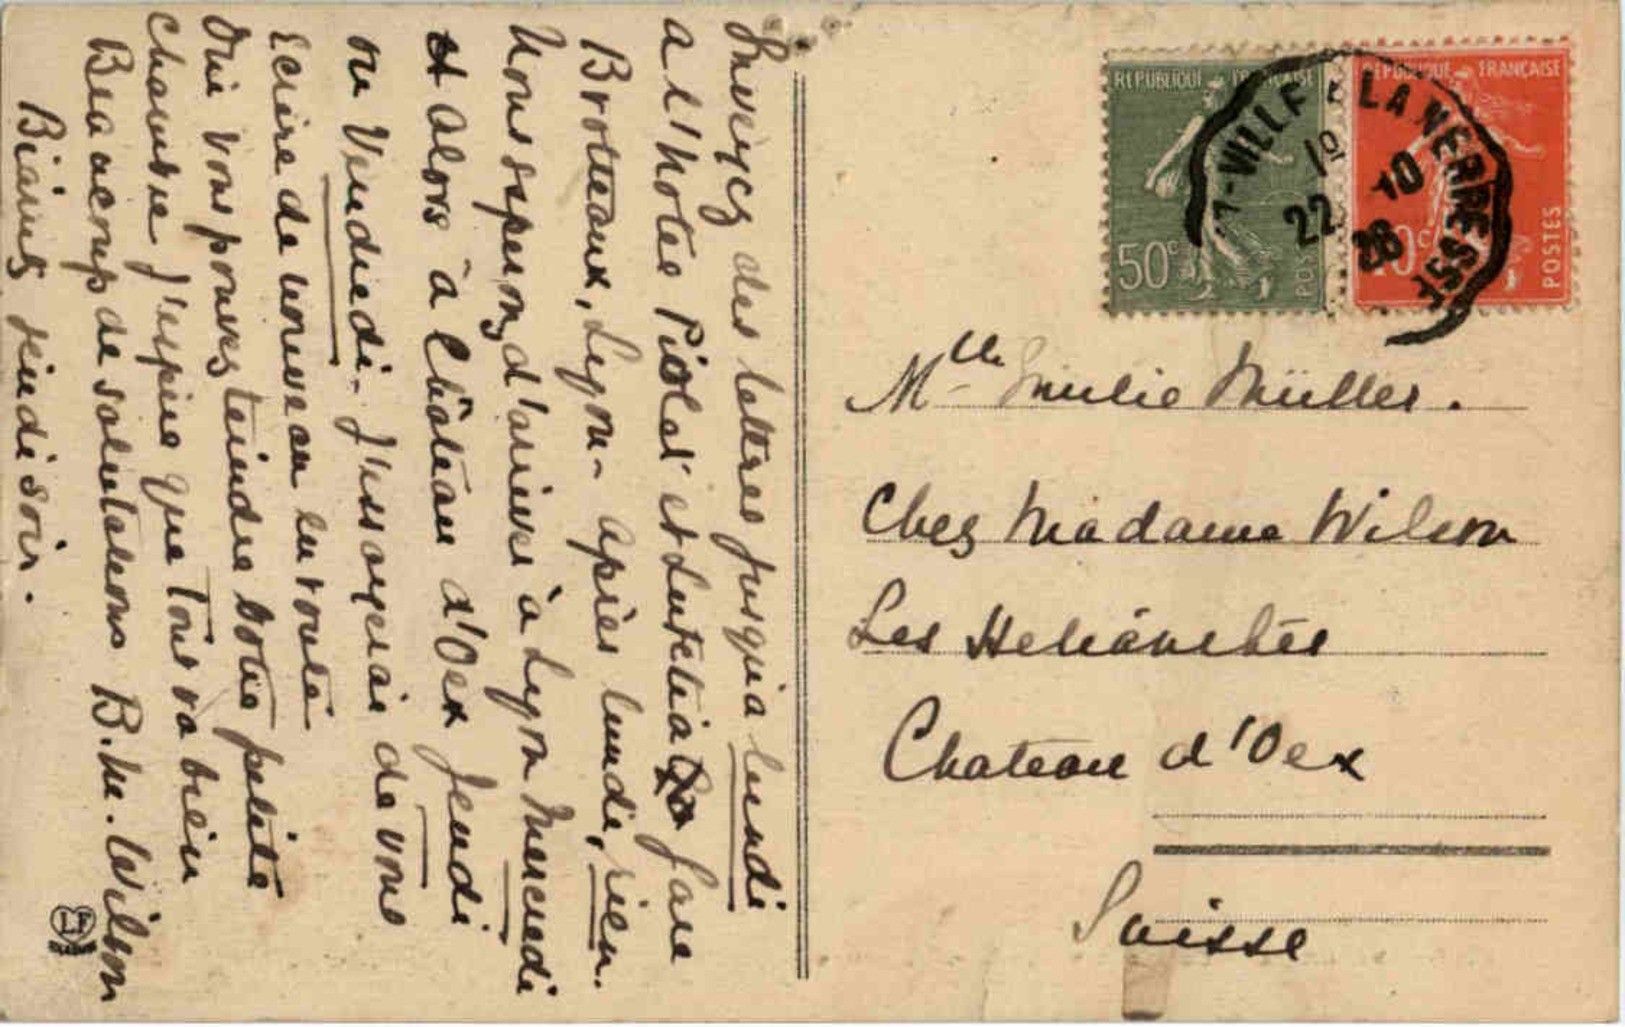 Envoyez des lettres jusqu'a lundi
a l'hotel Piolat et Lutetia Gare
Brotteaux, Lyon - après lundi, rien.
Nous esperons d'arriver à Lyon Mercredi
et alors à Château d'Oex Jeudi
ou Vendredi - J'essayerai de vous
Ecrire de nouveau en route
Oui vous pouvez teindre votre petite
chambre J'espère que tout va bien
Beaucoup de salutations B. M. Wilson
Biarritz jeudi soir.
REPUBLIQUE FRANÇAISE
50c
POSTES
REPUBLIQUE FRANÇAISE
10c
POSTES
22 10
26
Mlle Emilie Müller.
Chez Madame Wilson
Les Helianthes
Chateau d'Oex
Suisse